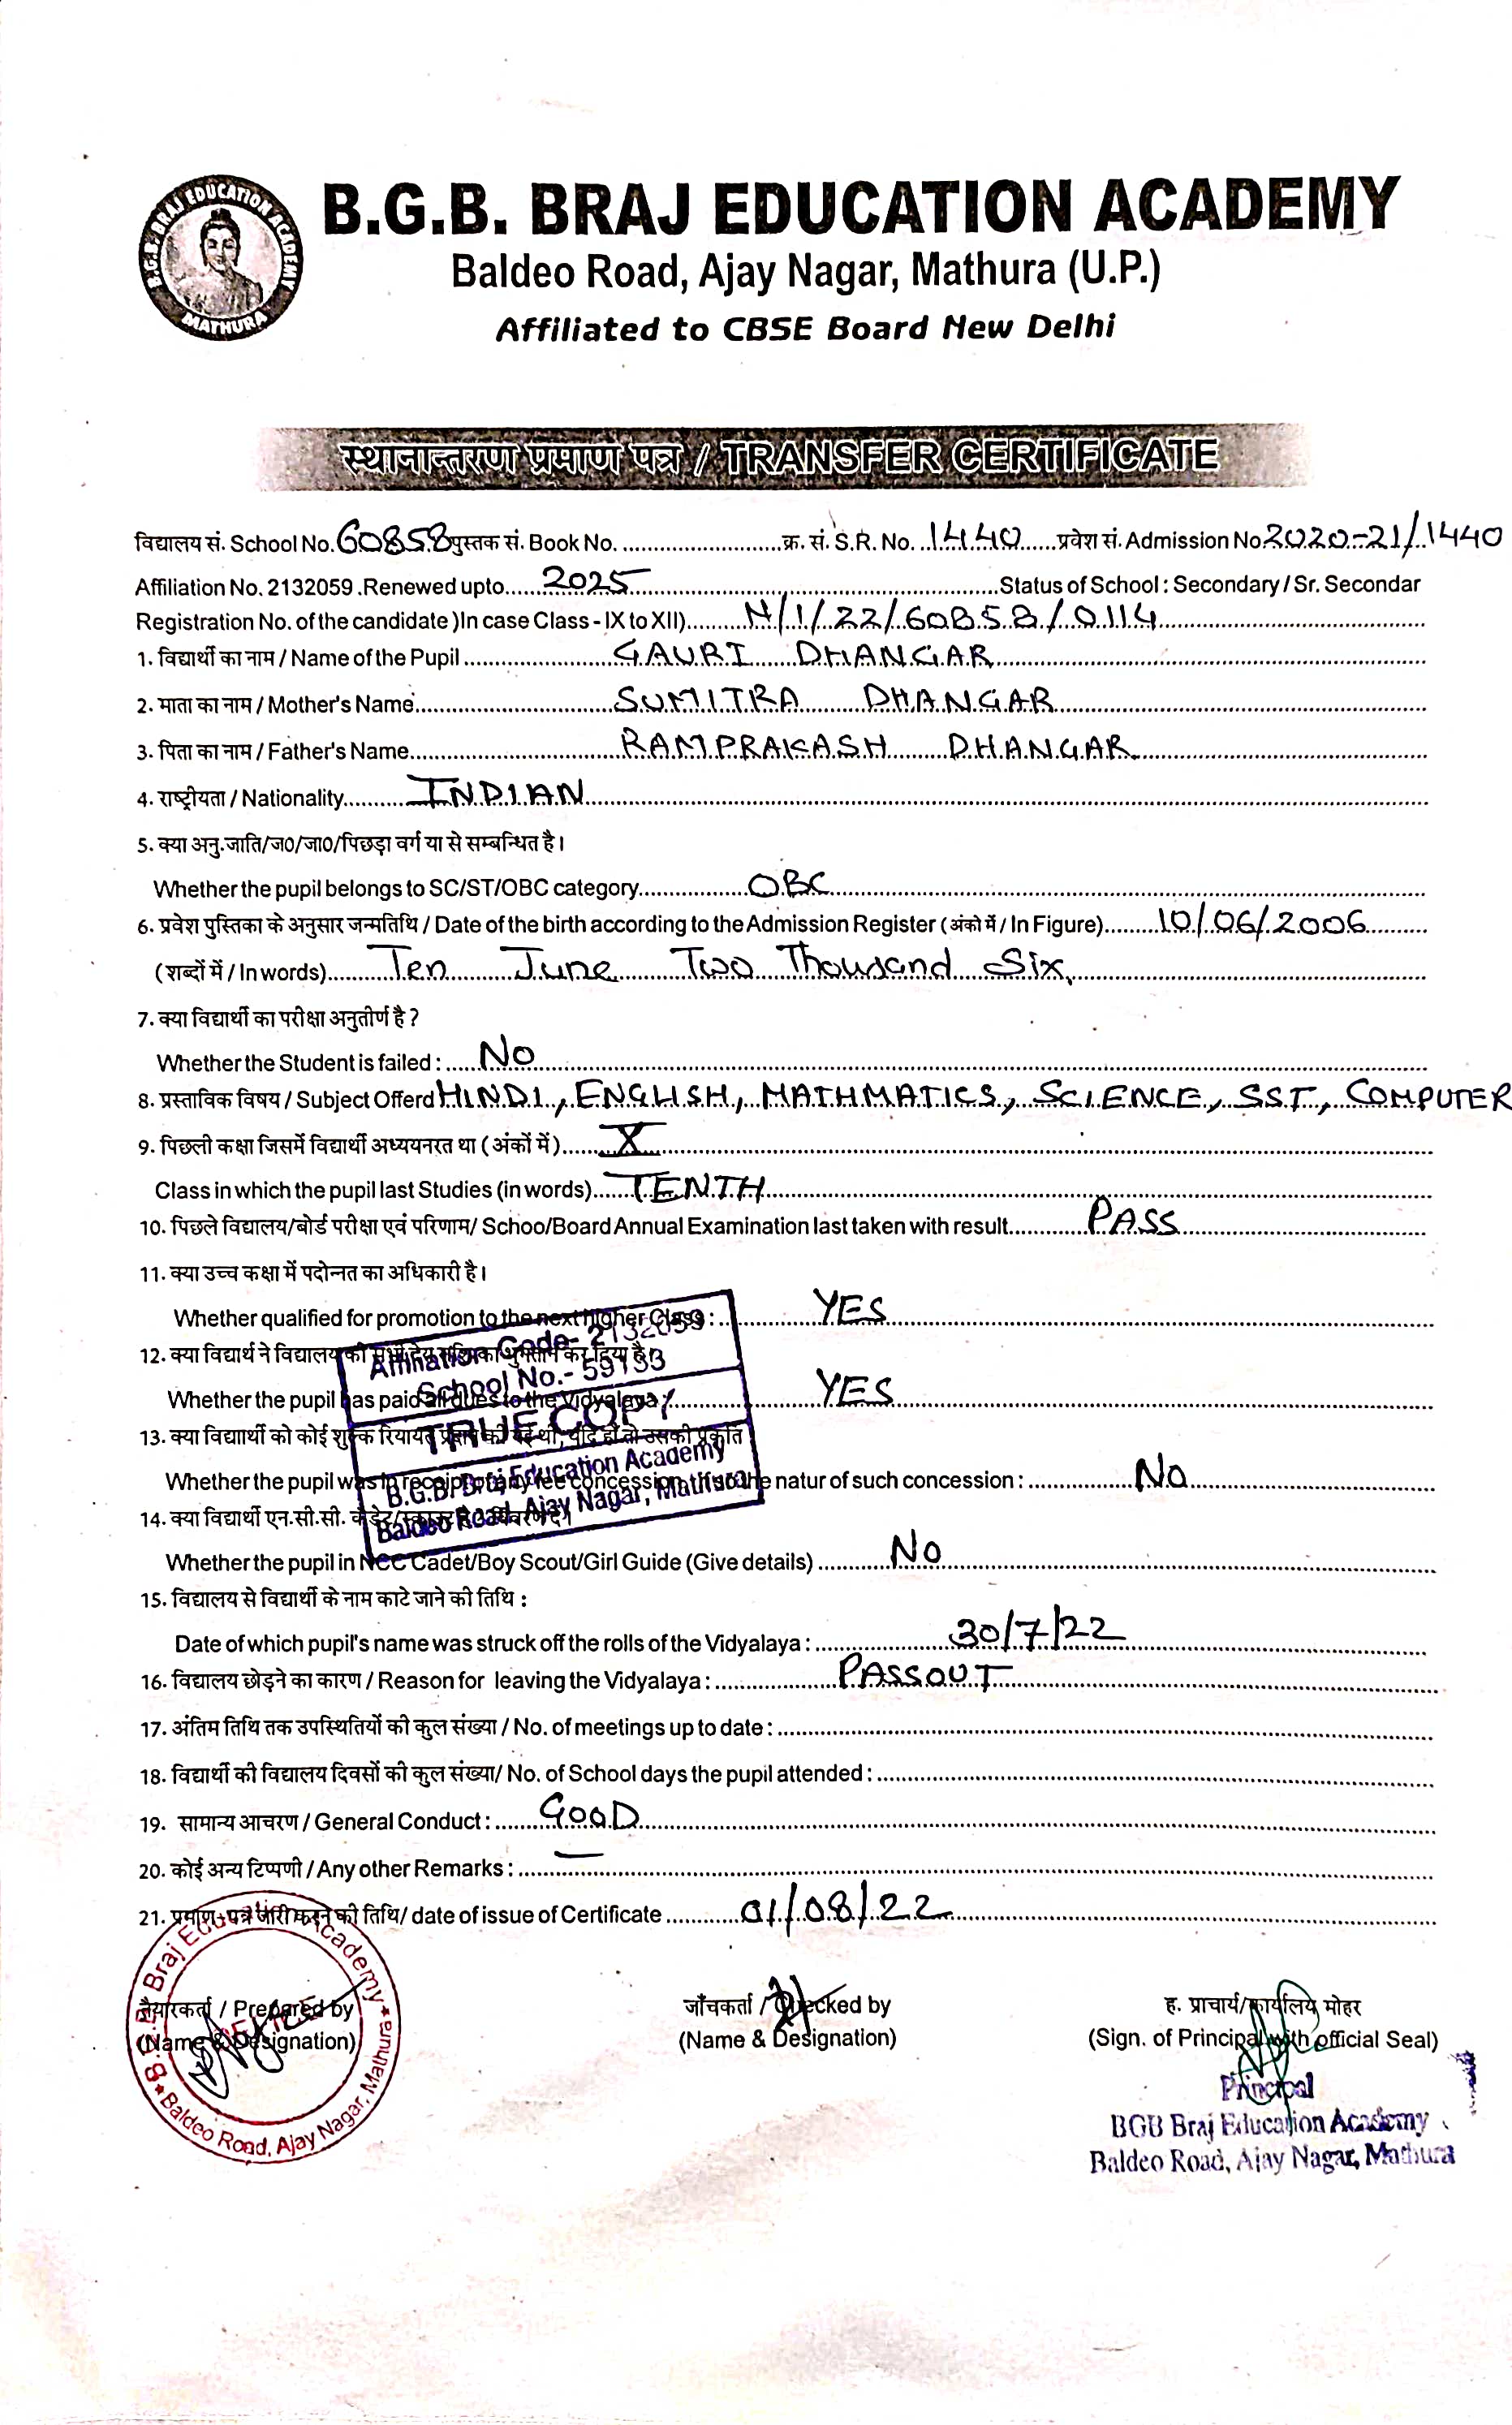 B.G.B. BRAJ EDUCATION ACADEMY
MATHURA
B.G.B. BRAJ EDUCATION ACADEMY
Baldeo Road, Ajay Nagar, Mathura (U.P.)
Affiliated to CBSE Board New Delhi
स्थानान्तरण प्रमाण पत्र / TRANSFER CERTIFICATE
विद्यालय सं. School No. 60858 पुस्तक सं. Book No. ........ क्र. सं. S.R. No. 1440 प्रवेश सं. Admission No. 2020-21/1440
Affiliation No. 2132059 .Renewed upto 2025 Status of School : Secondary / Sr. Secondar
Registration No. of the candidate )In case Class - IX to XII) N/1/22/60858/0114
1. विद्यार्थी का नाम / Name of the Pupil GAURI DHANGAR
2. माता का नाम / Mother's Name SUMITRA DHANGAR
3. पिता का नाम / Father's Name RAMPRAKASH DHANGAR
4. राष्ट्रीयता / Nationality INDIAN
5. क्या अनु.जाति/ज0/जा0/पिछड़ा वर्ग या से सम्बन्धित है।
Whether the pupil belongs to SC/ST/OBC category OBC
6. प्रवेश पुस्तिका के अनुसार जन्मतिथि / Date of the birth according to the Admission Register (अंको में / In Figure) 10/06/2006
(शब्दों में / In words) Ten June Two Thousand Six
7. क्या विद्यार्थी का परीक्षा अनुतीर्ण है ?
Whether the Student is failed : No
8. प्रस्ताविक विषय / Subject Offerd HINDI, ENGLISH, MATHMATICS, SCIENCE, SST, COMPUTER
9. पिछली कक्षा जिसमें विद्यार्थी अध्ययनरत था (अंकों में) X
Class in which the pupil last Studies (in words) TENTH
10. पिछले विद्यालय/बोर्ड परीक्षा एवं परिणाम/ Schoo/Board Annual Examination last taken with result PASS
11. क्या उच्च कक्षा में पदोन्नत का अधिकारी है।
Whether qualified for promotion to the next higher Class : YES
12. क्या विद्यार्थ ने विद्यालय की सभी देय राशि का भुगतान कर दिया है।
Whether the pupil has paid all dues to the Vidyalaya : YES
13. क्या विद्याार्थी को कोई शुल्क रियायत प्रदान की गई थी, यदि हाँ तो उसकी प्रकृति
Whether the pupil was in receipt of any fee concession, if so the natur of such concession : No
14. क्या विद्यार्थी एन.सी.सी. कैडेट/स्काउट है? विवरण दें।
Whether the pupil in NCC Cadet/Boy Scout/Girl Guide (Give details) No
Affiliation Code- 2132059
School No.- 59133
TRUE COPY
B.G.B. Braj Education Academy
Baldeo Road, Ajay Nagar, Mathura
15. विद्यालय से विद्यार्थी के नाम काटे जाने की तिथि :
Date of which pupil's name was struck off the rolls of the Vidyalaya : 30/7/22
16. विद्यालय छोड़ने का कारण / Reason for leaving the Vidyalaya : PASSOUT
17. अंतिम तिथि तक उपस्थितियों की कुल संख्या / No. of meetings up to date :
18. विद्यार्थी की विद्यालय दिवसों की कुल संख्या/ No. of School days the pupil attended :
19. सामान्य आचरण / General Conduct : GOOD
20. कोई अन्य टिप्पणी / Any other Remarks : —
21. प्रमाण-पत्र जारी करने की तिथि/ date of issue of Certificate 01/08/22
तैयारकर्ता / Prepared by जाँचकर्ता / Checked by ह. प्राचार्य/कार्यालय मोहर
(Name & Designation) (Name & Designation) (Sign. of Principal with official Seal)
B.G.B. Braj Education Academy
OFFICE
Baldeo Road, Ajay Nagar, Mathura
Principal
BGB Braj Education Academy
Baldeo Road, Ajay Nagar, Mathura